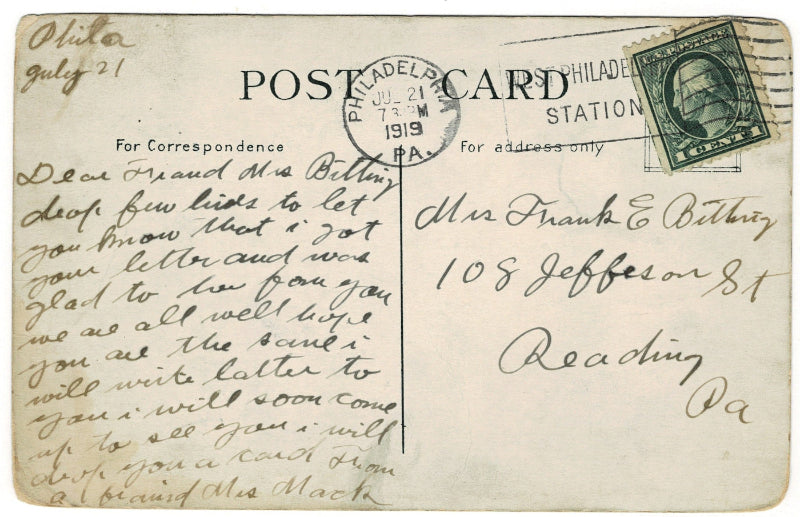 Phila
July 21
POST CARD
PHILADELPHIA
JUL 21
7 PM
1919
PA.
WEST PHILADEL
STATION
U.S. POSTAGE
1 CENT 1
For Correspondence
For address only
Dear Friand Mrs Bitting
drop few lines to let
you know that i got
your letter and was
glad to her from you
we are all well hope
you are the same i
will write latter to
you i will soon come
up to see you i will
drop you a card From
a fraind Mrs Mack
Mrs Frank E Bitting
108 Jeffeson St
Reading
Pa